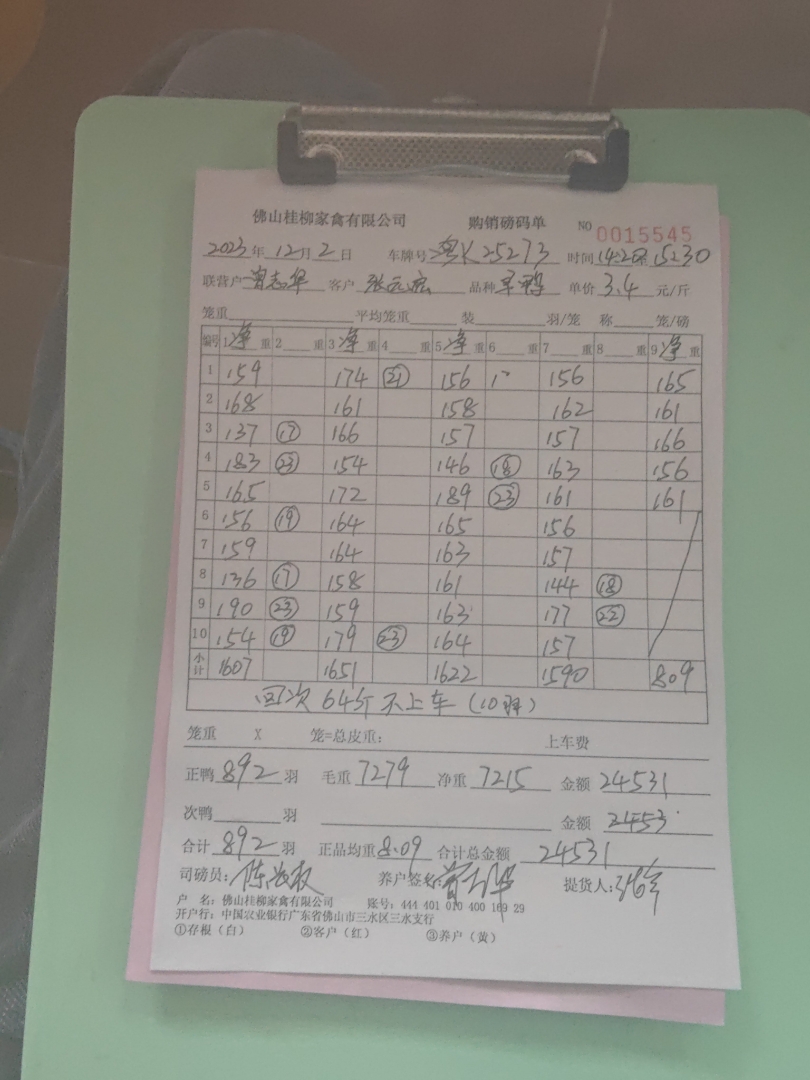 佛山桂柳家禽有限公司 购销磅码单 NO 0015545
2023年12月2日 车牌号 粤K25273 时间 14:20 15:30
联营户 曾志华 客户 品种 单价 3.4 元/斤
笼重 平均笼重 装 羽/笼 称 笼/磅
编号 1 净 重 2 重 3 净 重 4 重 5 净 重 6 重 7 重 8 重 9 净 重
1 159 174 (21) 156 1 156 165
2 168 161 158 162 161
3 137 (17) 166 157 157 166
4 183 (23) 154 146 (18) 163 156
5 165 172 189 (23) 161 161
6 156 (19) 164 165 156
7 159 164 163 157
8 136 (17) 158 161 144 (18)
9 190 (23) 159 163 177 (22)
10 154 (19) 179 (23) 164 157
小计 1607 1651 1622 1590 809
回次64斤不上车(10羽)
笼重 X 笼=总皮重: 上车费
正鸭 892 羽 毛重 7279 净重 7215 金额 24531
次鸭 羽 金额 2453
合计 892 羽 正品均重 8.09 合计总金额 24531
司磅员: 养户签名: 提货人:
户 名:佛山桂柳家禽有限公司 账号:444 401 010 400 169 29
开户行:中国农业银行广东省佛山市三水区三水支行
①存根(白) ②客户(红) ③养户(黄)